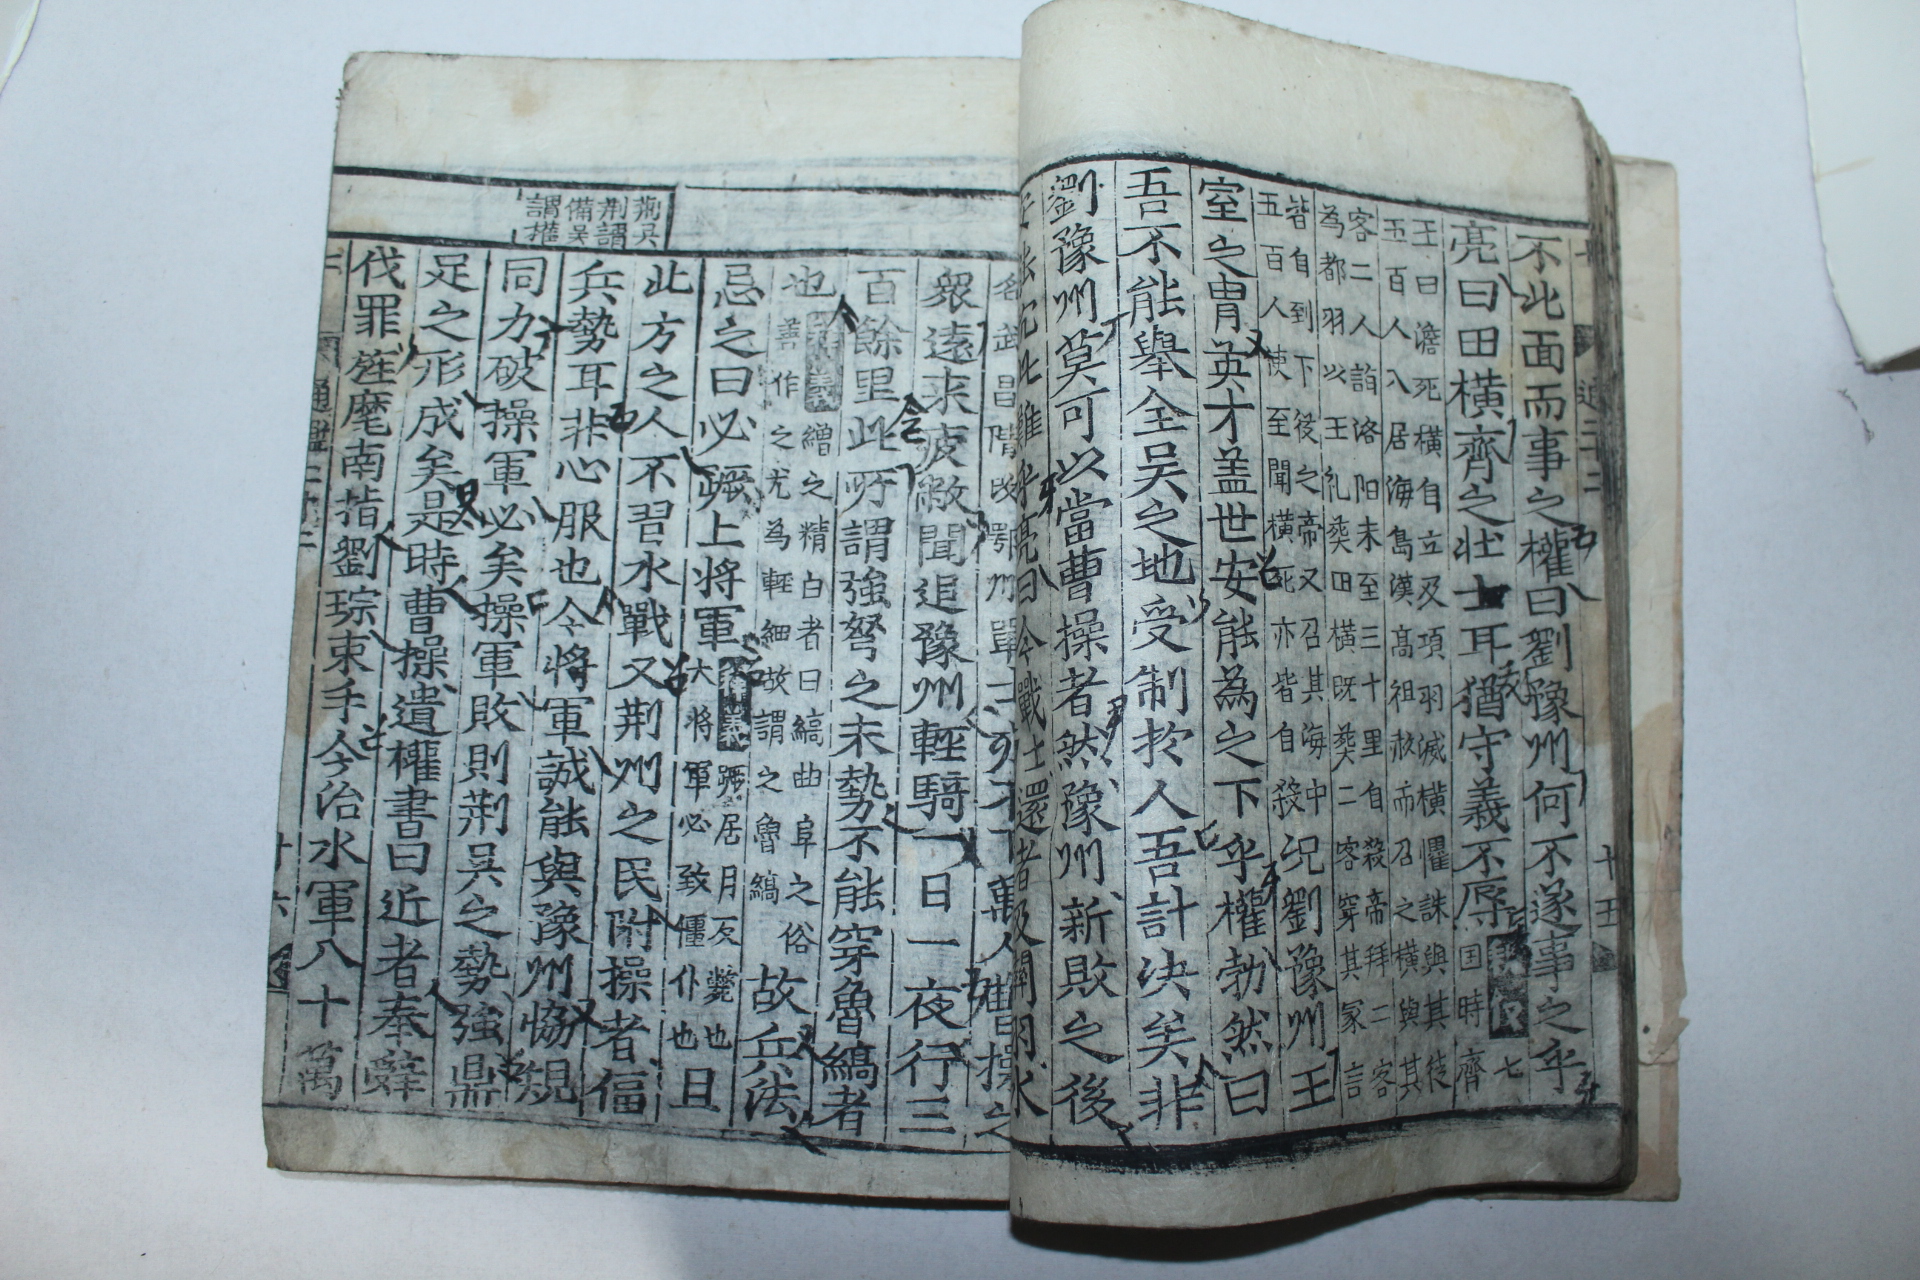 不北面而事之權曰劉豫州何不遂事之乎
亮曰田橫齊之壯士耳猶守義不辱
国時齊
七
王曰澹死橫自立及項羽滅橫懼誅與其徒
五百人入居海島漢高祖赦而召之橫與其
客二人詣洛阳未至三十里自殺帝拜二客
為都羽以王礼葬田橫既葬二客穿其冢言
皆自刭下從之帝又召其海中
五百人使至聞橫死亦皆自殺
況劉豫州王
室之胄英才盖世安能為之下乎權勃然曰
吾不能舉全吳之地受制於人吾計決矣非
劉豫州莫可以當曹操者然豫州新敗之後
安能抗此難乎亮曰今戰士還者及關羽水
衆遠来疲敝聞追豫州輕騎一日一夜行三
百餘里此所謂強弩之末勢不能穿魯縞者
也
繒之精白者曰縞曲阜之俗
善作之尤為輕細故謂之魯縞
故兵法
忌之曰必蹶上将軍
蹶居月反斃也
大将軍必致僵仆也
且
此方之人不習水戰又荆州之民附操者偪
兵勢耳非心服也今將軍誠能與豫州恊規
同力破操軍必矣操軍敗則荆吳之勢強鼎
足之形成矣是時曹操遺權書曰近者奉辤
伐罪旌麾南指劉琮束手今治水軍八十萬
荆吳
荆謂
備吴
謂權
通鑑二十二
十六
十五